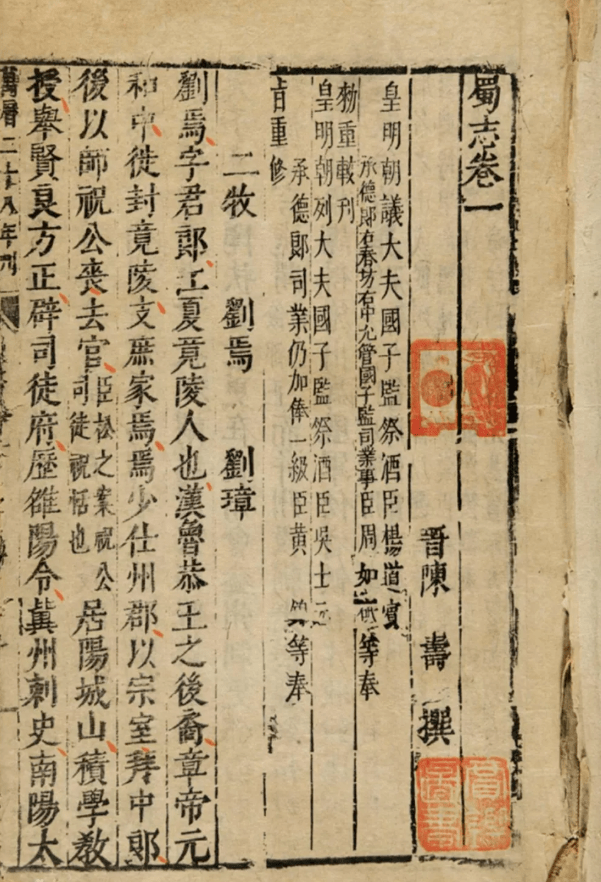 蜀志卷一
晉陳壽撰
皇明朝議大夫國子監祭酒臣楊道賓
承德郎右春坊右中允管國子監司業事臣周如等奉
勑重較刊
皇明朝列大夫國子監祭酒臣吳士
承德郎司業仍加俸一級臣黃等奉
旨重修
二牧 劉焉 劉璋
劉焉字君郎江夏竟陵人也漢魯恭王之後裔章帝元
和中徙封竟陵支庶家焉焉少仕州郡以宗室拜中郎
後以師祝公喪去官臣松之案祝公司徒祝恬也居陽城山積學敎
授舉賢良方正辟司徒府歷雒陽令冀州刺史南陽太
萬曆二十八年刊